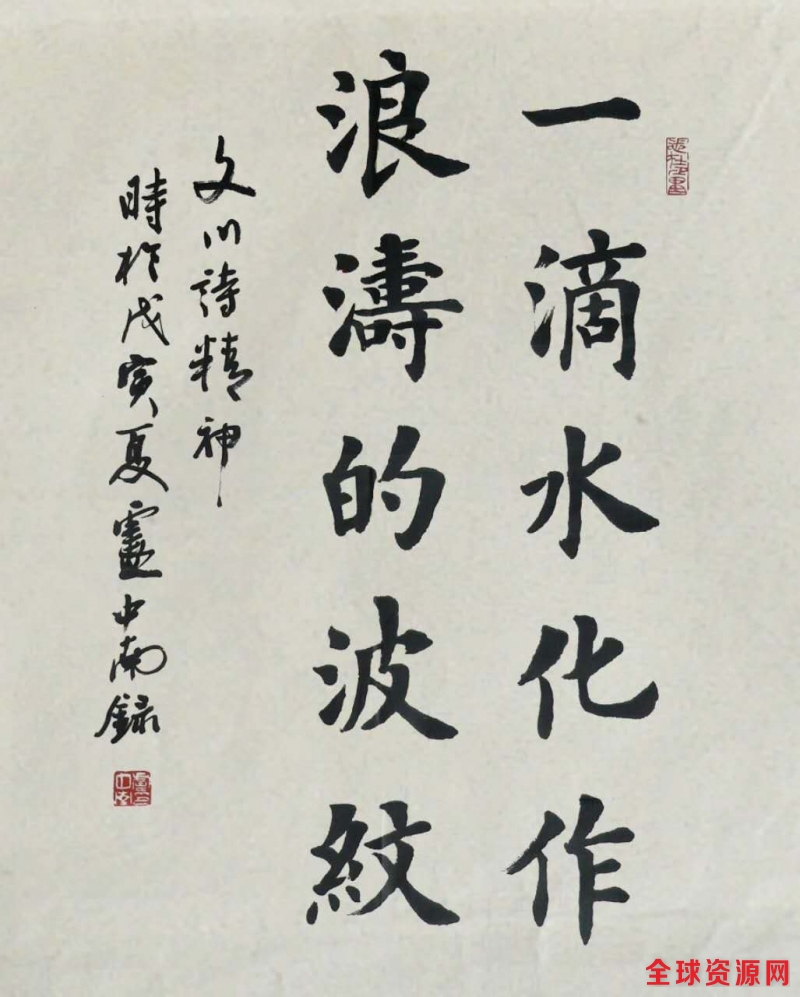 一滴水化作
浪濤的波紋
文川詩精神
時於戊寅夏盧中南錄
全球资源网